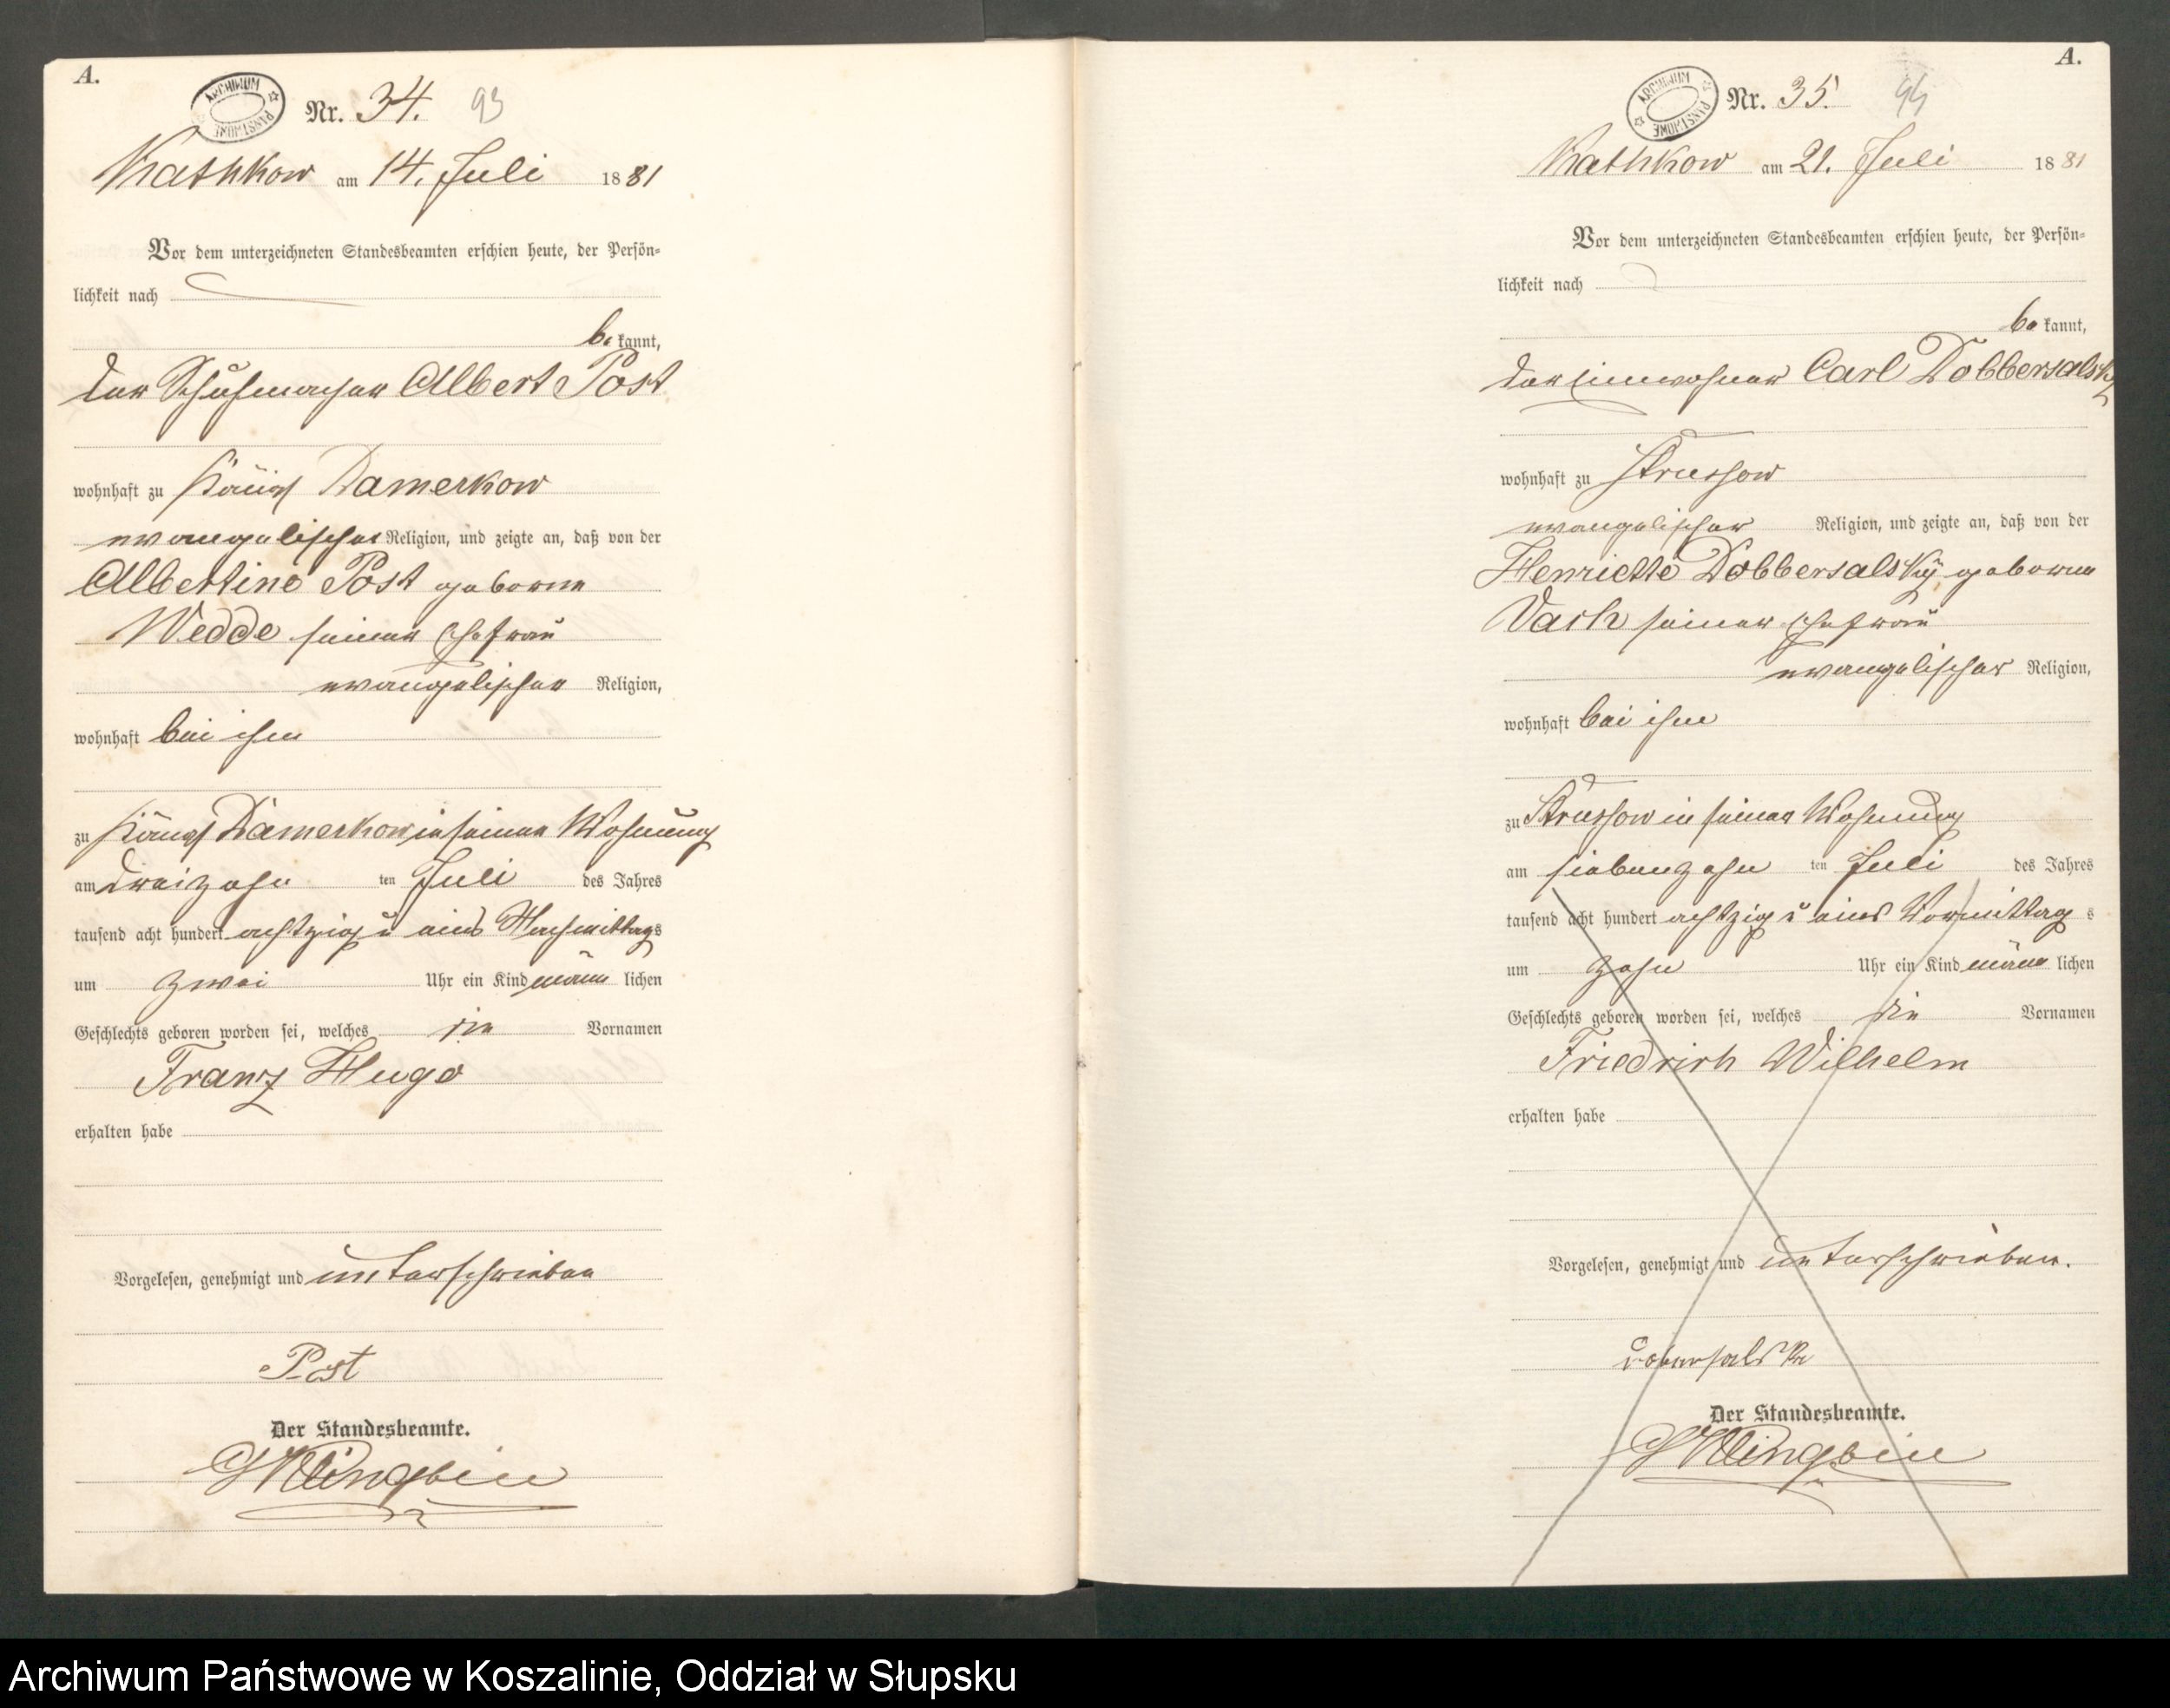 A.
ARCHIWUM PAŃSTWOWE
Nr. 34. 93
Rathkow am 14. Juli 1881
Vor dem unterzeichneten Standesbeamten erschien heute, der Persön-
lichkeit nach
bekannt,
der Schuhmacher Albert Post
wohnhaft zu Königl Damerkow
evangelischer Religion, und zeigte an, daß von der
Albertine Post geborne
Wedde seiner Ehefrau
evangelischer Religion,
wohnhaft bei ihm
zu Königl Damerkow in seiner Wohnung
am dreizehn ten Juli des Jahres
tausend acht hundert achtzig u eins Nachmittags
um zwei Uhr ein Kind männlichen
Geschlechts geboren worden sei, welches die Vornamen
Franz Hugo
erhalten habe
Vorgelesen, genehmigt und unterschrieben
Post
Der Standesbeamte.
Klingbeil
A.
ARCHIWUM PAŃSTWOWE
Nr. 35. 94
Rathkow am 21. Juli 1881
Vor dem unterzeichneten Standesbeamten erschien heute, der Persön-
lichkeit nach
bekannt,
der Einwohner Carl Dobbersalsky
wohnhaft zu Strussow
evangelischer Religion, und zeigte an, daß von der
Henriette Dobbersalsky geborne
Vach seiner Ehefrau
evangelischer Religion,
wohnhaft bei ihm
zu Strussow in seiner Wohnung
am siebenzehn ten Juli des Jahres
tausend acht hundert achtzig u eins Vormittags
um zehn Uhr ein Kind männlichen
Geschlechts geboren worden sei, welches die Vornamen
Friedrich Wilhelm
erhalten habe
Vorgelesen, genehmigt und unterschrieben.
Der Standesbeamte.
Klingbeil
Archiwum Państwowe w Koszalinie, Oddział w Słupsku